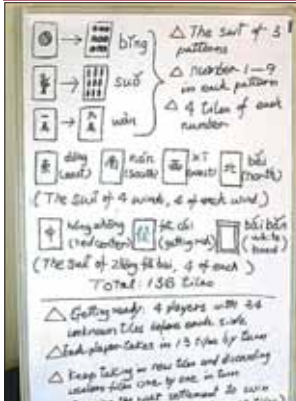 bǐng △ The suit of 3 patterns
suǒ △ number 1-9 in each pattern
一萬 → 九萬 wàn △ 4 tiles of each number
東 dōng (east) 南 nán (south) 西 xī (west) 北 běi (north)
(The suit of 4 winds, 4 of each wind)
中 hóng zhōng (red center) 發 fā cái (getting rich) bái bǎn (white board)
(The suit of zhōng fā bái, 4 of each)
Total: 136 tiles
△ Getting ready: 4 players with 34 unknown tiles before each side
△ Each player takes in 13 tiles by turn
△ Keep taking in new tiles and discarding useless tiles one by one in turn
settlement to win